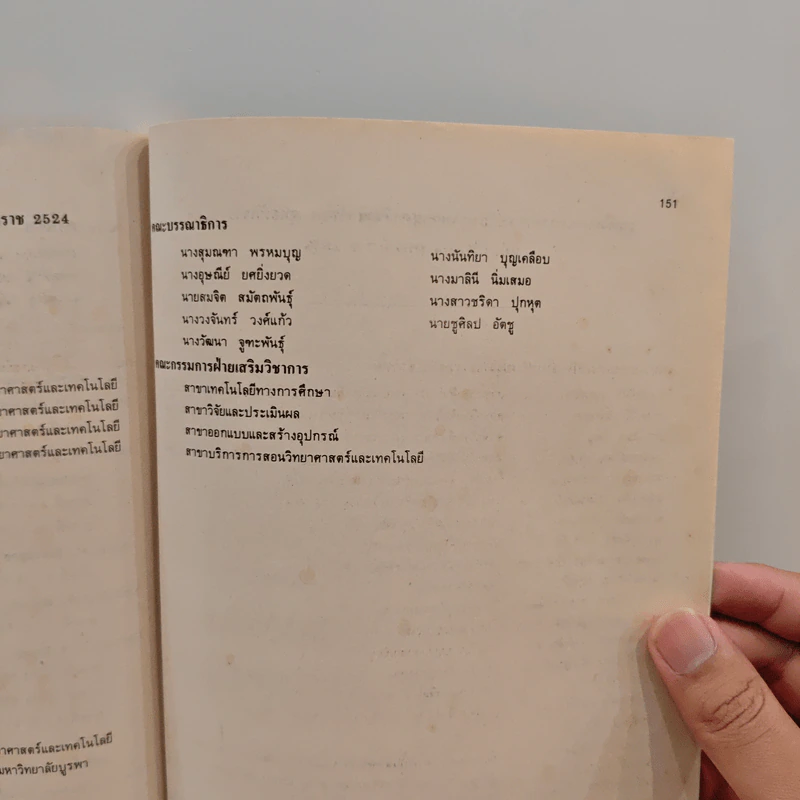 ราช 2524
าศาสตร์และเทคโนโลยี
าศาสตร์และเทคโนโลยี
ยาศาสตร์และเทคโนโลยี
ยาศาสตร์และเทคโนโลยี
าศาสตร์และเทคโนโลยี
มหาวิทยาลัยบูรพา
151
คณะบรรณาธิการ
นางสุมณฑา พรหมบุญ นางนันทิยา บุญเคลือบ
นางอุษณีย์ ยศยิ่งยวด นางมาลินี นิ่มเสมอ
นายสมจิต สมัตถพันธุ์ นางสาวชริดา ปุกหุต
นางวงจันทร์ วงศ์แก้ว นายชูศิลป อัตชู
นางวัฒนา จูฑะพันธุ์
คณะกรรมการฝ่ายเสริมวิชาการ
สาขาเทคโนโลยีทางการศึกษา
สาขาวิจัยและประเมินผล
สาขาออกแบบและสร้างอุปกรณ์
สาขาบริการการสอนวิทยาศาสตร์และเทคโนโลยี